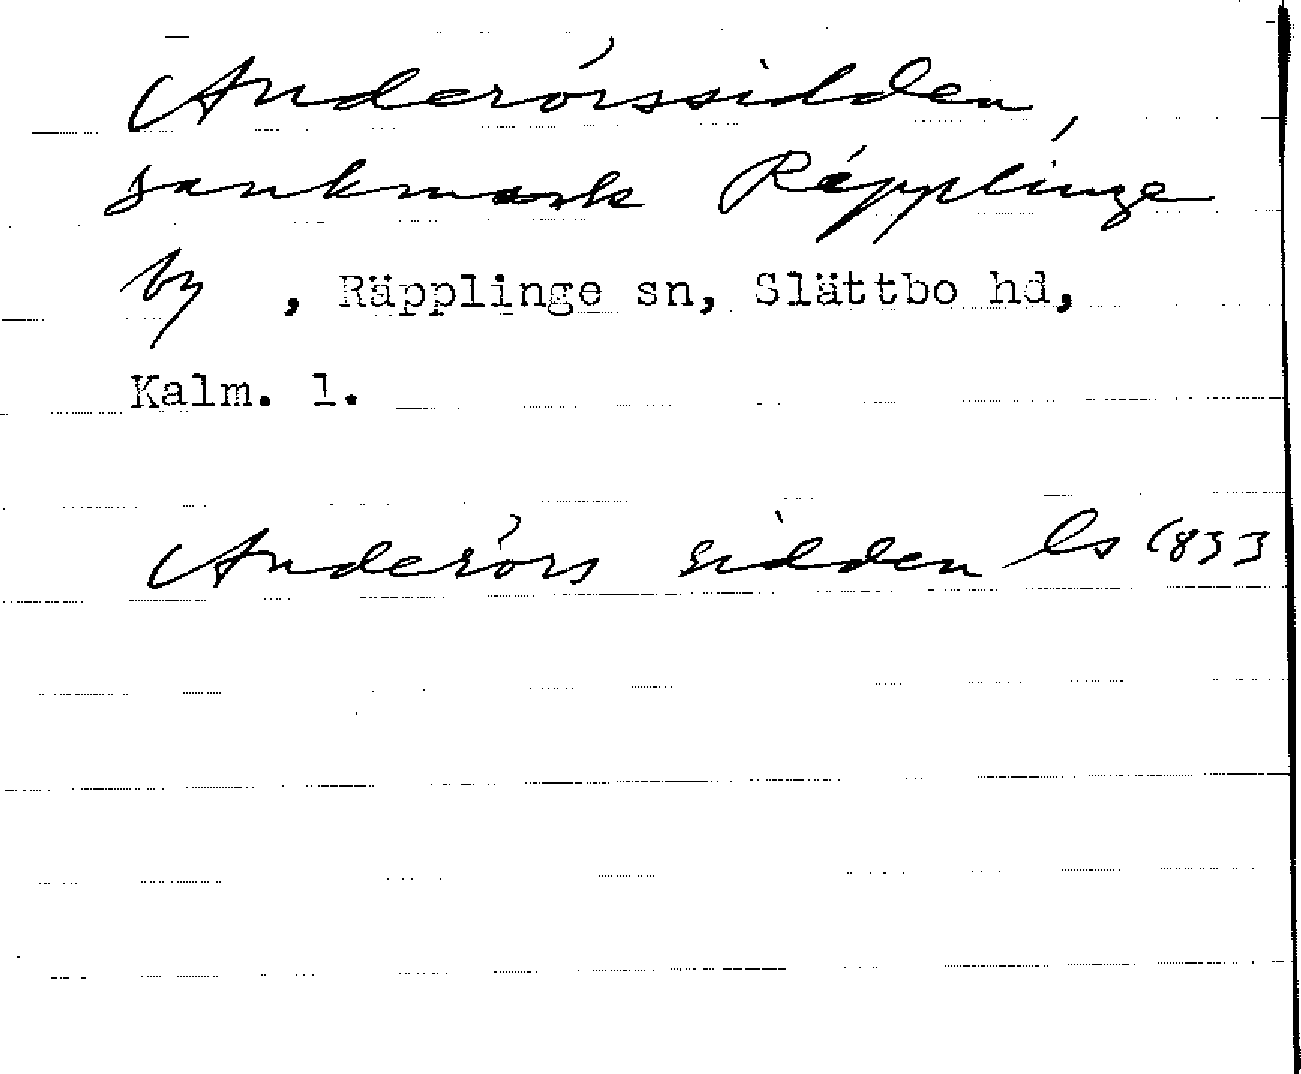 Anderörssidden,
sankmark Räpplinge
by , Räpplinge sn, Slättbo hd,
Kalm. l.
Anderörs sidden Ls 1833